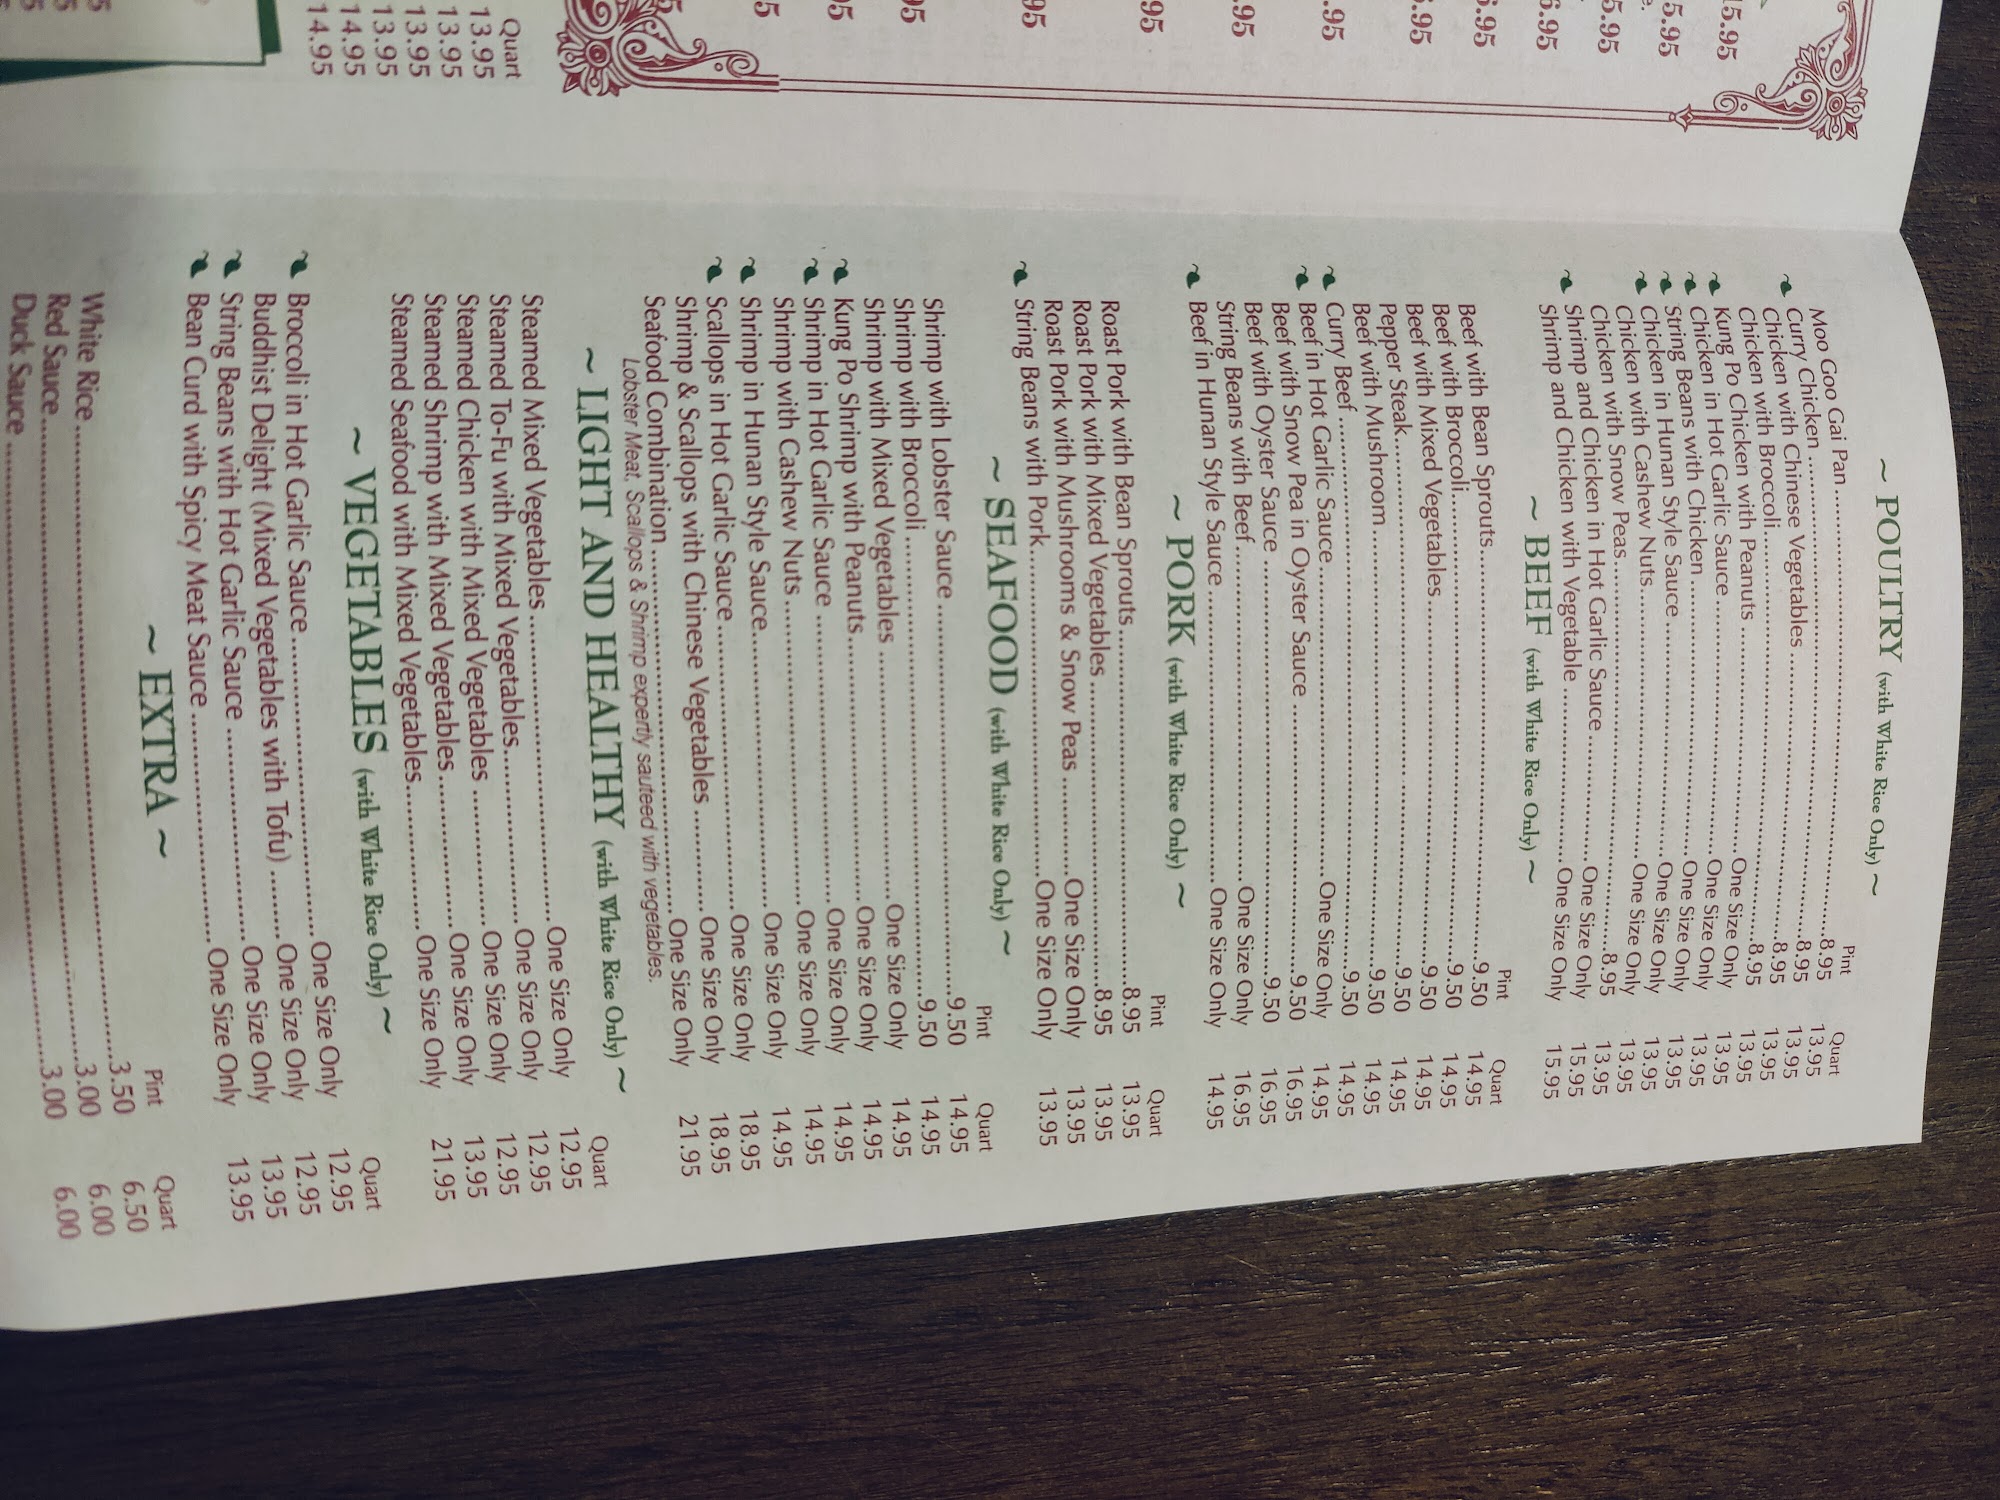 ~ POULTRY (with White Rice Only) ~
Pint Quart
Moo Goo Gai Pan 8.95 13.95
Curry Chicken 8.95 13.95
Chicken with Chinese Vegetables 8.95 13.95
Chicken with Broccoli 8.95 13.95
Chicken with Peanuts One Size Only 13.95
Kung Po Chicken with Peanuts One Size Only 13.95
Chicken in Hot Garlic Sauce One Size Only 13.95
String Beans with Chicken One Size Only 13.95
Chicken in Hunan Style Sauce One Size Only 13.95
Chicken with Cashew Nuts One Size Only 13.95
Chicken with Snow Peas 8.95 13.95
Shrimp and Chicken in Hot Garlic Sauce One Size Only 15.95
Shrimp and Chicken with Vegetable One Size Only 15.95
~ BEEF (with White Rice Only) ~
Pint Quart
Beef with Bean Sprouts 9.50 14.95
Beef with Broccoli 9.50 14.95
Beef with Mixed Vegetables 9.50 14.95
Pepper Steak 9.50 14.95
Beef with Mushroom 9.50 14.95
Curry Beef 9.50 14.95
Beef in Hot Garlic Sauce One Size Only 14.95
Beef with Snow Pea in Oyster Sauce 9.50 16.95
Beef with Oyster Sauce 9.50 16.95
String Beans with Beef One Size Only 16.95
Beef in Hunan Style Sauce One Size Only 14.95
~ PORK (with White Rice Only) ~
Pint Quart
Roast Pork with Bean Sprouts 8.95 13.95
Roast Pork with Mixed Vegetables 8.95 13.95
Roast Pork with Mushrooms & Snow Peas One Size Only 13.95
String Beans with Pork One Size Only 13.95
~ SEAFOOD (with White Rice Only) ~
Pint Quart
Shrimp with Lobster Sauce 9.50 14.95
Shrimp with Broccoli 9.50 14.95
Shrimp with Mixed Vegetables One Size Only 14.95
Kung Po Shrimp with Peanuts One Size Only 14.95
Shrimp in Hot Garlic Sauce One Size Only 14.95
Shrimp with Cashew Nuts One Size Only 14.95
Shrimp in Hunan Style Sauce One Size Only 14.95
Scallops in Hot Garlic Sauce One Size Only 18.95
Shrimp & Scallops with Chinese Vegetables One Size Only 18.95
Seafood Combination One Size Only 21.95
Lobster Meat, Scallops & Shrimp expertly sauteed with vegetables.
~ LIGHT AND HEALTHY (with White Rice Only) ~
Quart
Steamed Mixed Vegetables One Size Only 12.95
Steamed To-Fu with Mixed Vegetables One Size Only 12.95
Steamed Chicken with Mixed Vegetables One Size Only 12.95
Steamed Shrimp with Mixed Vegetables One Size Only 13.95
Steamed Seafood with Mixed Vegetables One Size Only 21.95
~ VEGETABLES (with White Rice Only) ~
Quart
Broccoli in Hot Garlic Sauce One Size Only 12.95
Buddhist Delight (Mixed Vegetables with Tofu) One Size Only 12.95
String Beans with Hot Garlic Sauce One Size Only 13.95
Bean Curd with Spicy Meat Sauce One Size Only 13.95
~ EXTRA ~
Pint Quart
White Rice 3.50 6.50
Red Sauce 3.00 6.00
Duck Sauce 3.00 6.00
Quart
13.95
13.95
13.95
13.95
14.95
14.95